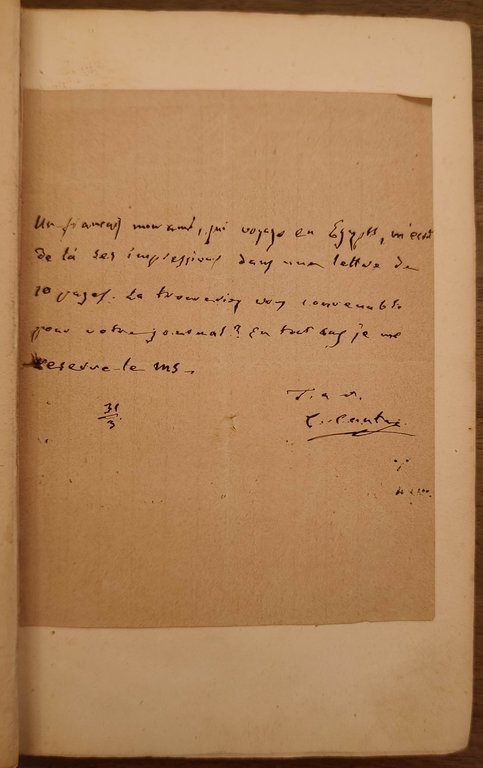 Un français mon ami, qui voyage en Egypte, m'écrit
de là ses impressions dans une lettre de
10 pages. La trouveriez vous convenable
pour votre journal? En tout cas je me
reserve le ms.
31
3
T. a v.
C. Cantù